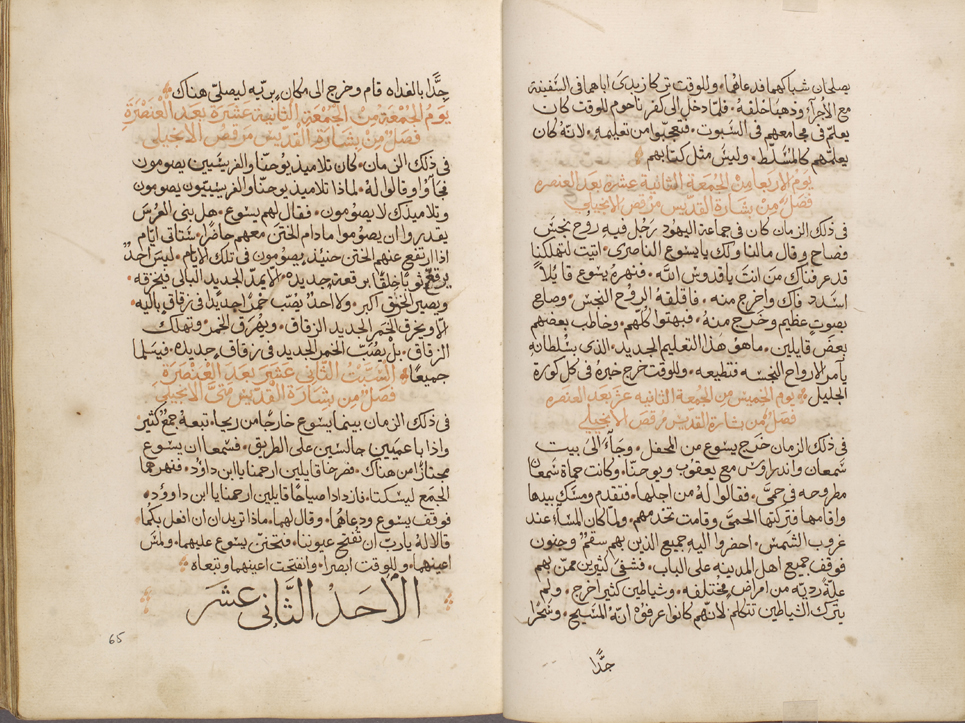 يصلحان شباكهما فدعاهما۰ وللوقت تركا زبدي اباهما في السفينة
مع الأجرآ۰ وذهبا خلفهُ۰ فلما دخل الى كفر ناحوم للوقت كان
يعلم في مجامعهم في السبوت۰ فتعجبوا من تعليمه۰ لانهُ كان
يعلمهم كالمسلط۰ وليس مثل كتابهم
يوم الاربعا من الجمعة الثانية عشرة بعد العنصره
فصل من بشارة القديس مرقص الانجيلي
في ذلك الزمان كان في جماعة اليهود رجل فيه روح نجس
فصاح وقال مالنا ولك يا يسوع الناصري۰ اتيت لتهلكنا
قد عرفناك من انت يا قدوس الله۰ فنهرهُ يسوع قايلاً
اسدد فاك واخرج منه۰ فاقلقهُ الروح النجس۰ وصاح
بصوت عظيم وخرج منهُ۰ فبهتوا كلهم۰ وخاطب بعضهم
بعض قايلين۰ ما هو هذا التعليم الجديد۰ الذي بسلطانه
يأمر الارواح النجسه فتطيعه۰ وللوقت خرج خبره في كل كورة
الجليل يوم الخميس من الجمعة الثانيه عشر بعد العنصره
فصل من بشارة القديس مرقص الانجيلي
في ذلك الزمان خرج يسوع من المحفل۰ وجآء الى بيت
شمعان واندراوس مع يعقوب ويوحنا۰ وكانت حماة شمعان
مطروحه في حمى۰ فقالوا لهُ من اجلها۰ فتقدم ومسك بيدها
واقامها فتركتها الحمى۰ وقامت تخدمهم۰ ولما كان المسآء عند
غروب الشمس۰ احضروا اليه جميع الذين بهم سقم وجنون
فوقف جميع اهل المدينه على الباب۰ فشفى كثيرين ممن بهم
علة رديه من امراض مختلفه۰ وشياطين كثير اخرج۰ ولم
يترك الشياطين تتكلم لانهم كانوا عرفوهُ انهُ المسيح۰ وسَحَرًا
جدًّا
جدًّا بالغداه قام وخرج الى مكان بريه ليصلي هناك
يوم الجمعة من الجمعة الثانية عشرة بعد العنصرة
فصل من بشارة القديس مرقص الانجيلي
في ذلك الزمان۰ كان تلاميذ يوحنا والفريسيين يصومون
فجآوا وقالوا لهُ۰ لماذا تلاميذ يوحنا والفريسيون يصومون
وتلاميذك لا يصومون۰ فقال لهم يسوع۰ هل بني العرس
يقدروا ان يصوموا ما دام الختن معهم حاضرا۰ ستاتي ايام
اذا ارتفع عنهم الختن حنيئذ يصومون في تلك الايام۰ ليس احد
يرقع ثوبًا خلقًا برقعة جديده۰ لألا يمد الجديد البالي فيخرقه۰
ويصير الخرق اكبر۰ ولا احد يصب خمرًا جديدًا في زقاق باليه۰
لألا ويخرق الخمر الجديد الزقاق۰ ويهرق الخمر۰ وتهلك
الزقاق۰ بل يصب الخمر الجديد في زقاق جديده۰ فيسلما
جميعًا السبت الثاني عشر بعد العنصرة
فصل من بشارة القديس متى الانجيلي
في ذلك الزمان بينما يسوع خارجًا من ريحا۰ تبعهُ جمع كثير
واذا باعميين جالسين على الطريق۰ فسمعا ان يسوع
مجتازًا من هناك۰ فصرخا قايلين ارحمنا يا ابن داود۰ فنهرهما
الجمع ليسكتا۰ فازدادا صياحًا قايلين ارحمنا يا ابن داوود۰
فوقف يسوع ودعاهما۰ وقال لهما۰ ماذا تريدان ان افعل بكما۰
قالا لهُ يا رب ان تفتح عيوننا۰ فتحنن يسوع عليهما۰ ولمس
اعينهما۰ وللوقت ابصرا۰ وانفتحت اعينهما وتبعاه
الاحد الثاني عشر
65